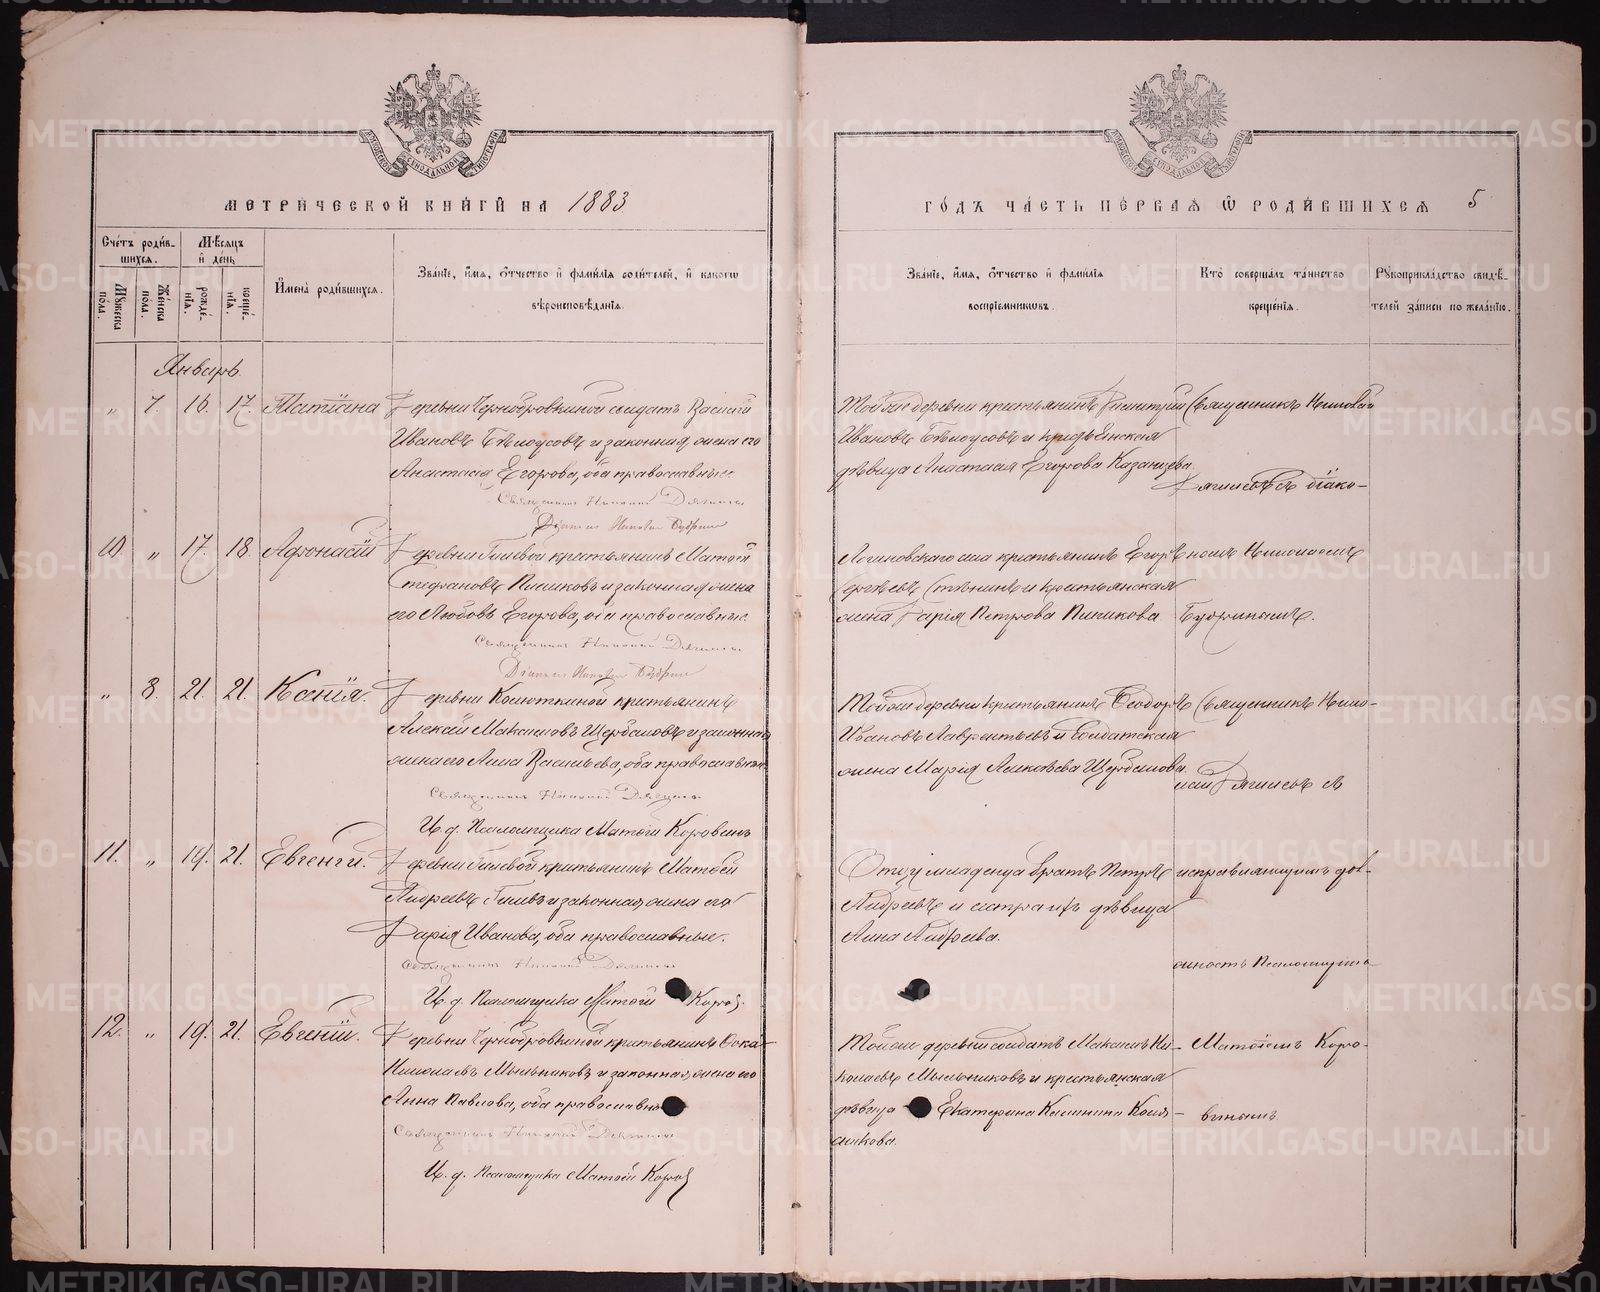 МЕТРИЧЕСКОЙ КНИГИ НА 1883
ГОДЪ ЧАСТЬ ПЕРВАЯ Ѡ РОДИВШИХСЯ 5
Счетъ родив-
шихся.
Мужеска пола.
Женска пола.
Мѣсяцъ
и день
рожде-
нїя.
креще-
нїя.
Имена родившихся.
Званїе, имя, отчество и фамилїя родителей, и какогѡ
вѣроисповѣданїя.
Званїе, имя, отчество и фамилїя
воспрїемниковъ.
Кто совершалъ таинство
крещенїя.
Рукоприкладство свидѣ-
телей записи по желанїю.
Январь.
„ 7. 16. 17. Татїана
Деревни Чернобровкиной солдатъ Василїй
Ивановъ Бѣлоусовъ и законная жена его
Анастасія Егорова, оба православные.
Священникъ Николай
Дїаконъ Николай Будринъ
Той же деревни крестьянинъ Димитрїй
Ивановъ Бѣлоусовъ и крестьянская
дѣвица Анастасія Егорова Казанцева.
Священникъ Николай
Дягилевъ съ дїако-
10. „ 17. 18. Афонасїй
Деревни Гилевой крестьянинъ Матвѣй
Стефановъ и законная жена
его Любовь Егорова, оба православные.
Священникъ Николай
Дїаконъ Николай Будринъ
Логиновскаго села крестьянинъ Егоръ
Сергѣевъ и крестьянская
жена Дарія Петрова
номъ Николаемъ
Будринымъ.
„ 8. 21. 21. Ксенїя.
Деревни крестьянинъ
Алексѣй Максимовъ Щербаковъ и законная
жена его Анна Васильева, оба православные.
Священникъ Николай
И. д. Псаломщика Матвѣй Коровинъ
Той же деревни крестьянинъ Ѳеодоръ
Ивановъ Лаврентьевъ и солдатская
жена Марія Алексѣева Щербакова.
Священникъ Нико-
лай Дягилевъ съ
11. „ 19. 21. Евгенїй.
Деревни Гилевой крестьянинъ Матвѣй
Андреевъ Гилевъ и законная жена его
Дарїя Иванова, оба православные.
Священникъ Николай
И. д. Псаломщика Матвѣй Коров.
Отцу младенца братъ Петръ
Андреевъ и сестра ихъ дѣвица
Анна Андреева.
исправляющимъ дол-
жность Псаломщика
12. „ 19. 21. Евгенїй.
Деревни Чернобровкиной крестьянинъ Ѳока
Николаевъ Мыльниковъ и законная жена его
Анна Павлова, оба православные
Священникъ Николай
И. д. Псаломщика Матвѣй Коров
Той же деревни солдатъ Максимъ Ни-
колаевъ Мыльниковъ и крестьянская
дѣвица Екатерина
Матвѣемъ Коро-
винымъ
METRIKI.GASO-URAL.RU